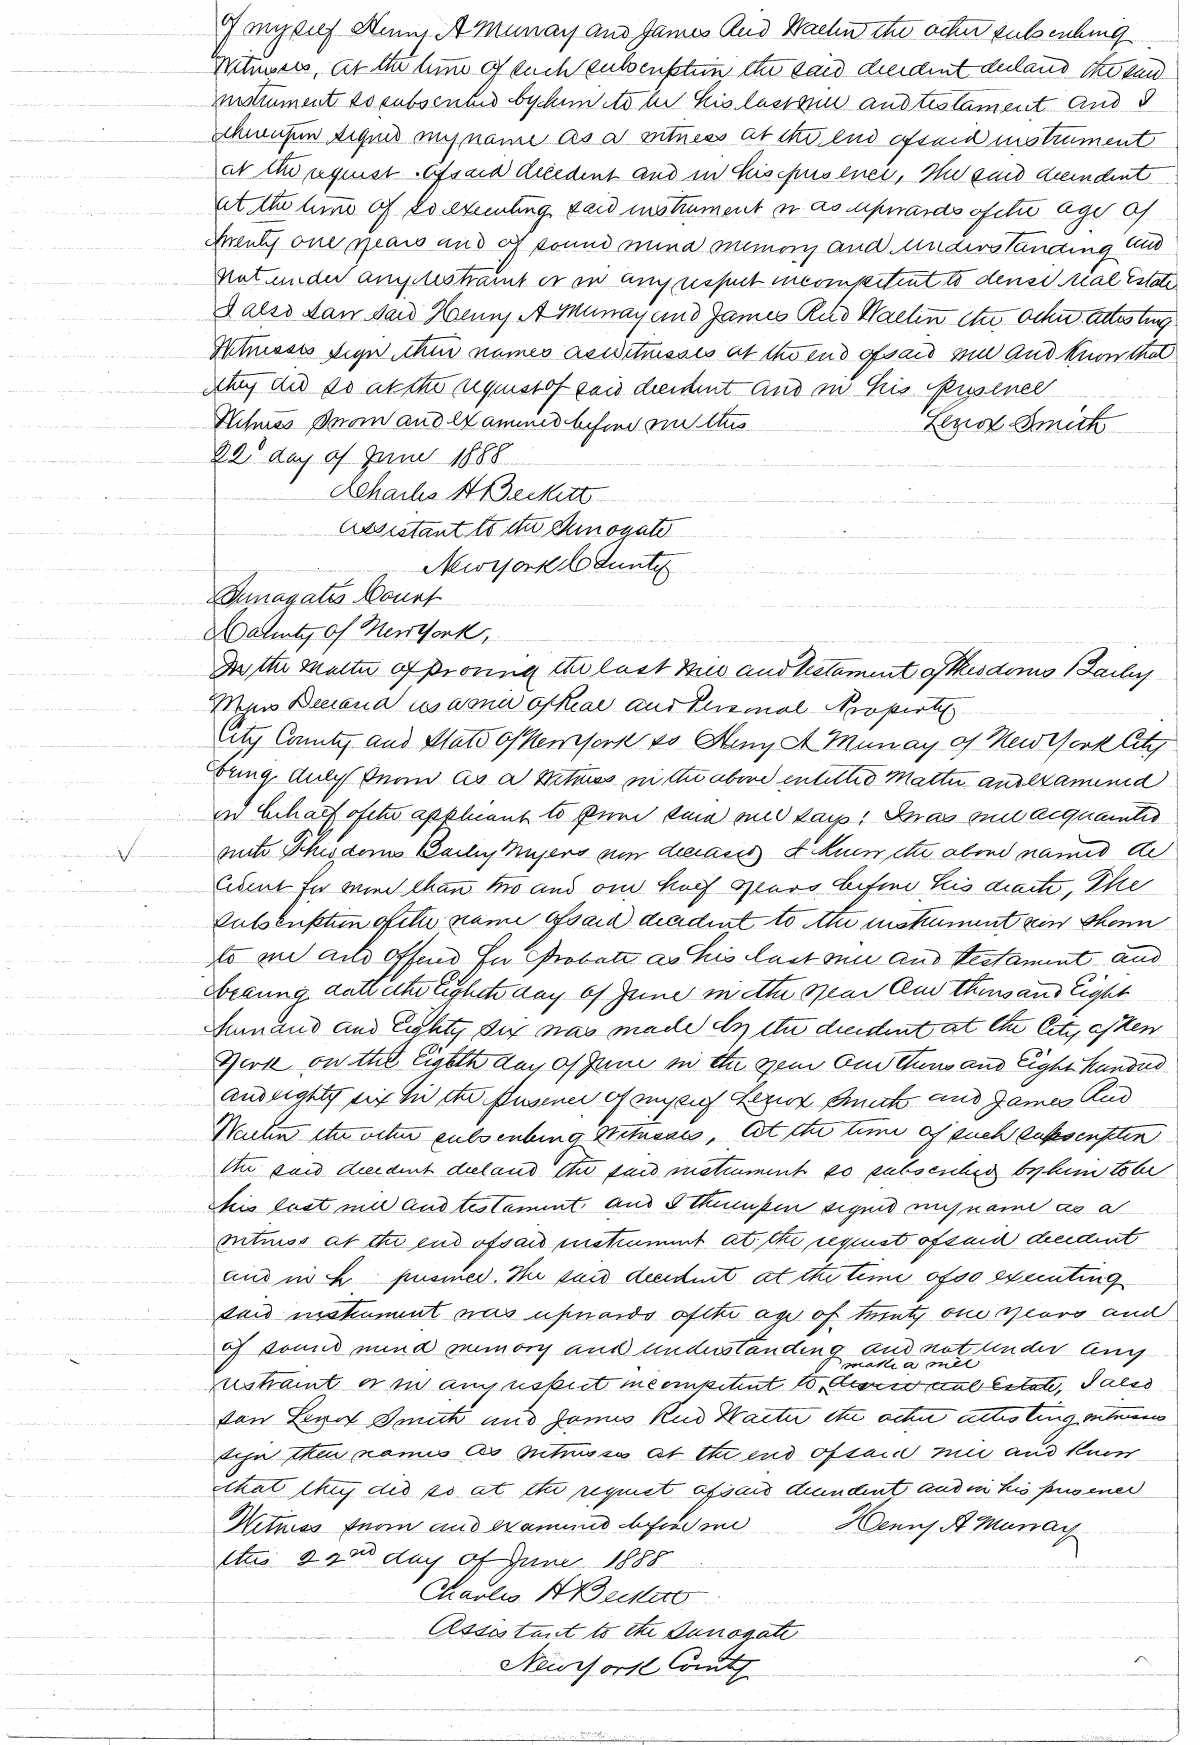 of myself Henry A Murray and James Reid Walter the other subscribing
Witnesses, at the time of such subscription the said decedent declared the said
instrument so subscribed by him to be his last will and testament and I
thereupon signed my name as a witness at the end of said instrument
at the request of said decedent and in his presence, The said decendent
at the time of so executing said instrument was upwards of the age of
twenty one years and of sound mind memory and understanding and
not under any restraint or in any respect incompetent to devise real Estate
I also saw said Henry A Murray and James Reid Walter the other attesting
Witnesses sign their names as witnesses at the end of said will and know that
they did so at the request of said decedent and in his presence
Witness sworn and examined before me this Lenox Smith
22d day of June 1888
Charles H Beckett
Assistant to the Surrogate
New York County
Surrogates Court
County of New York,
In the Matter of proving the last Will and Testament of Theodorus Bailey
Myers Deceased as a will of Real and Personal Property
City County and State of New York ss Henry A Murray of New York City
being duly sworn as a witness in the above entitled Matter and examined
on behalf of the applicant to prove said will says: I was well acquainted
with Theodorus Bailey Myers now deceased I knew the above named de
cedent for more than two and one half years before his death, The
subscription of the name of said decedent to the instrument now shown
to me and offered for probate as his last will and testament and
bearing date the Eighth day of June in the year One thousand Eight
hundred and Eighty Six was made by the decedent at the City of New
York on the Eighth day of June in the year One thousand Eight hundred
and eighty six in the presence of myself Lenox Smith and James Reid
Walter the other subscribing Witnesses, At the time of such subscription
the said decedent declared the said instrument so subscribed by him to be
his last will and testament. and I thereupon signed my name as a
witness at the end of said instrument at the request of said decedent
and in h presence. The said decedent at the time of so executing
said instrument was upwards of the age of twenty one years and
of sound mind memory and understanding and not under any
make a will
restraint or in any respect incompetent to devise real Estate, I also
saw Lenox Smith and James Reid Walter the other attesting witnesses
sign their names as witnesses at the end of said will and know
that they did so at the request of said decendent and in his presence
Witness sworn and examined before me Henry A Murray
this 22nd day of June 1888
Charles H Beckett
Assistant to the Surrogate
New York County